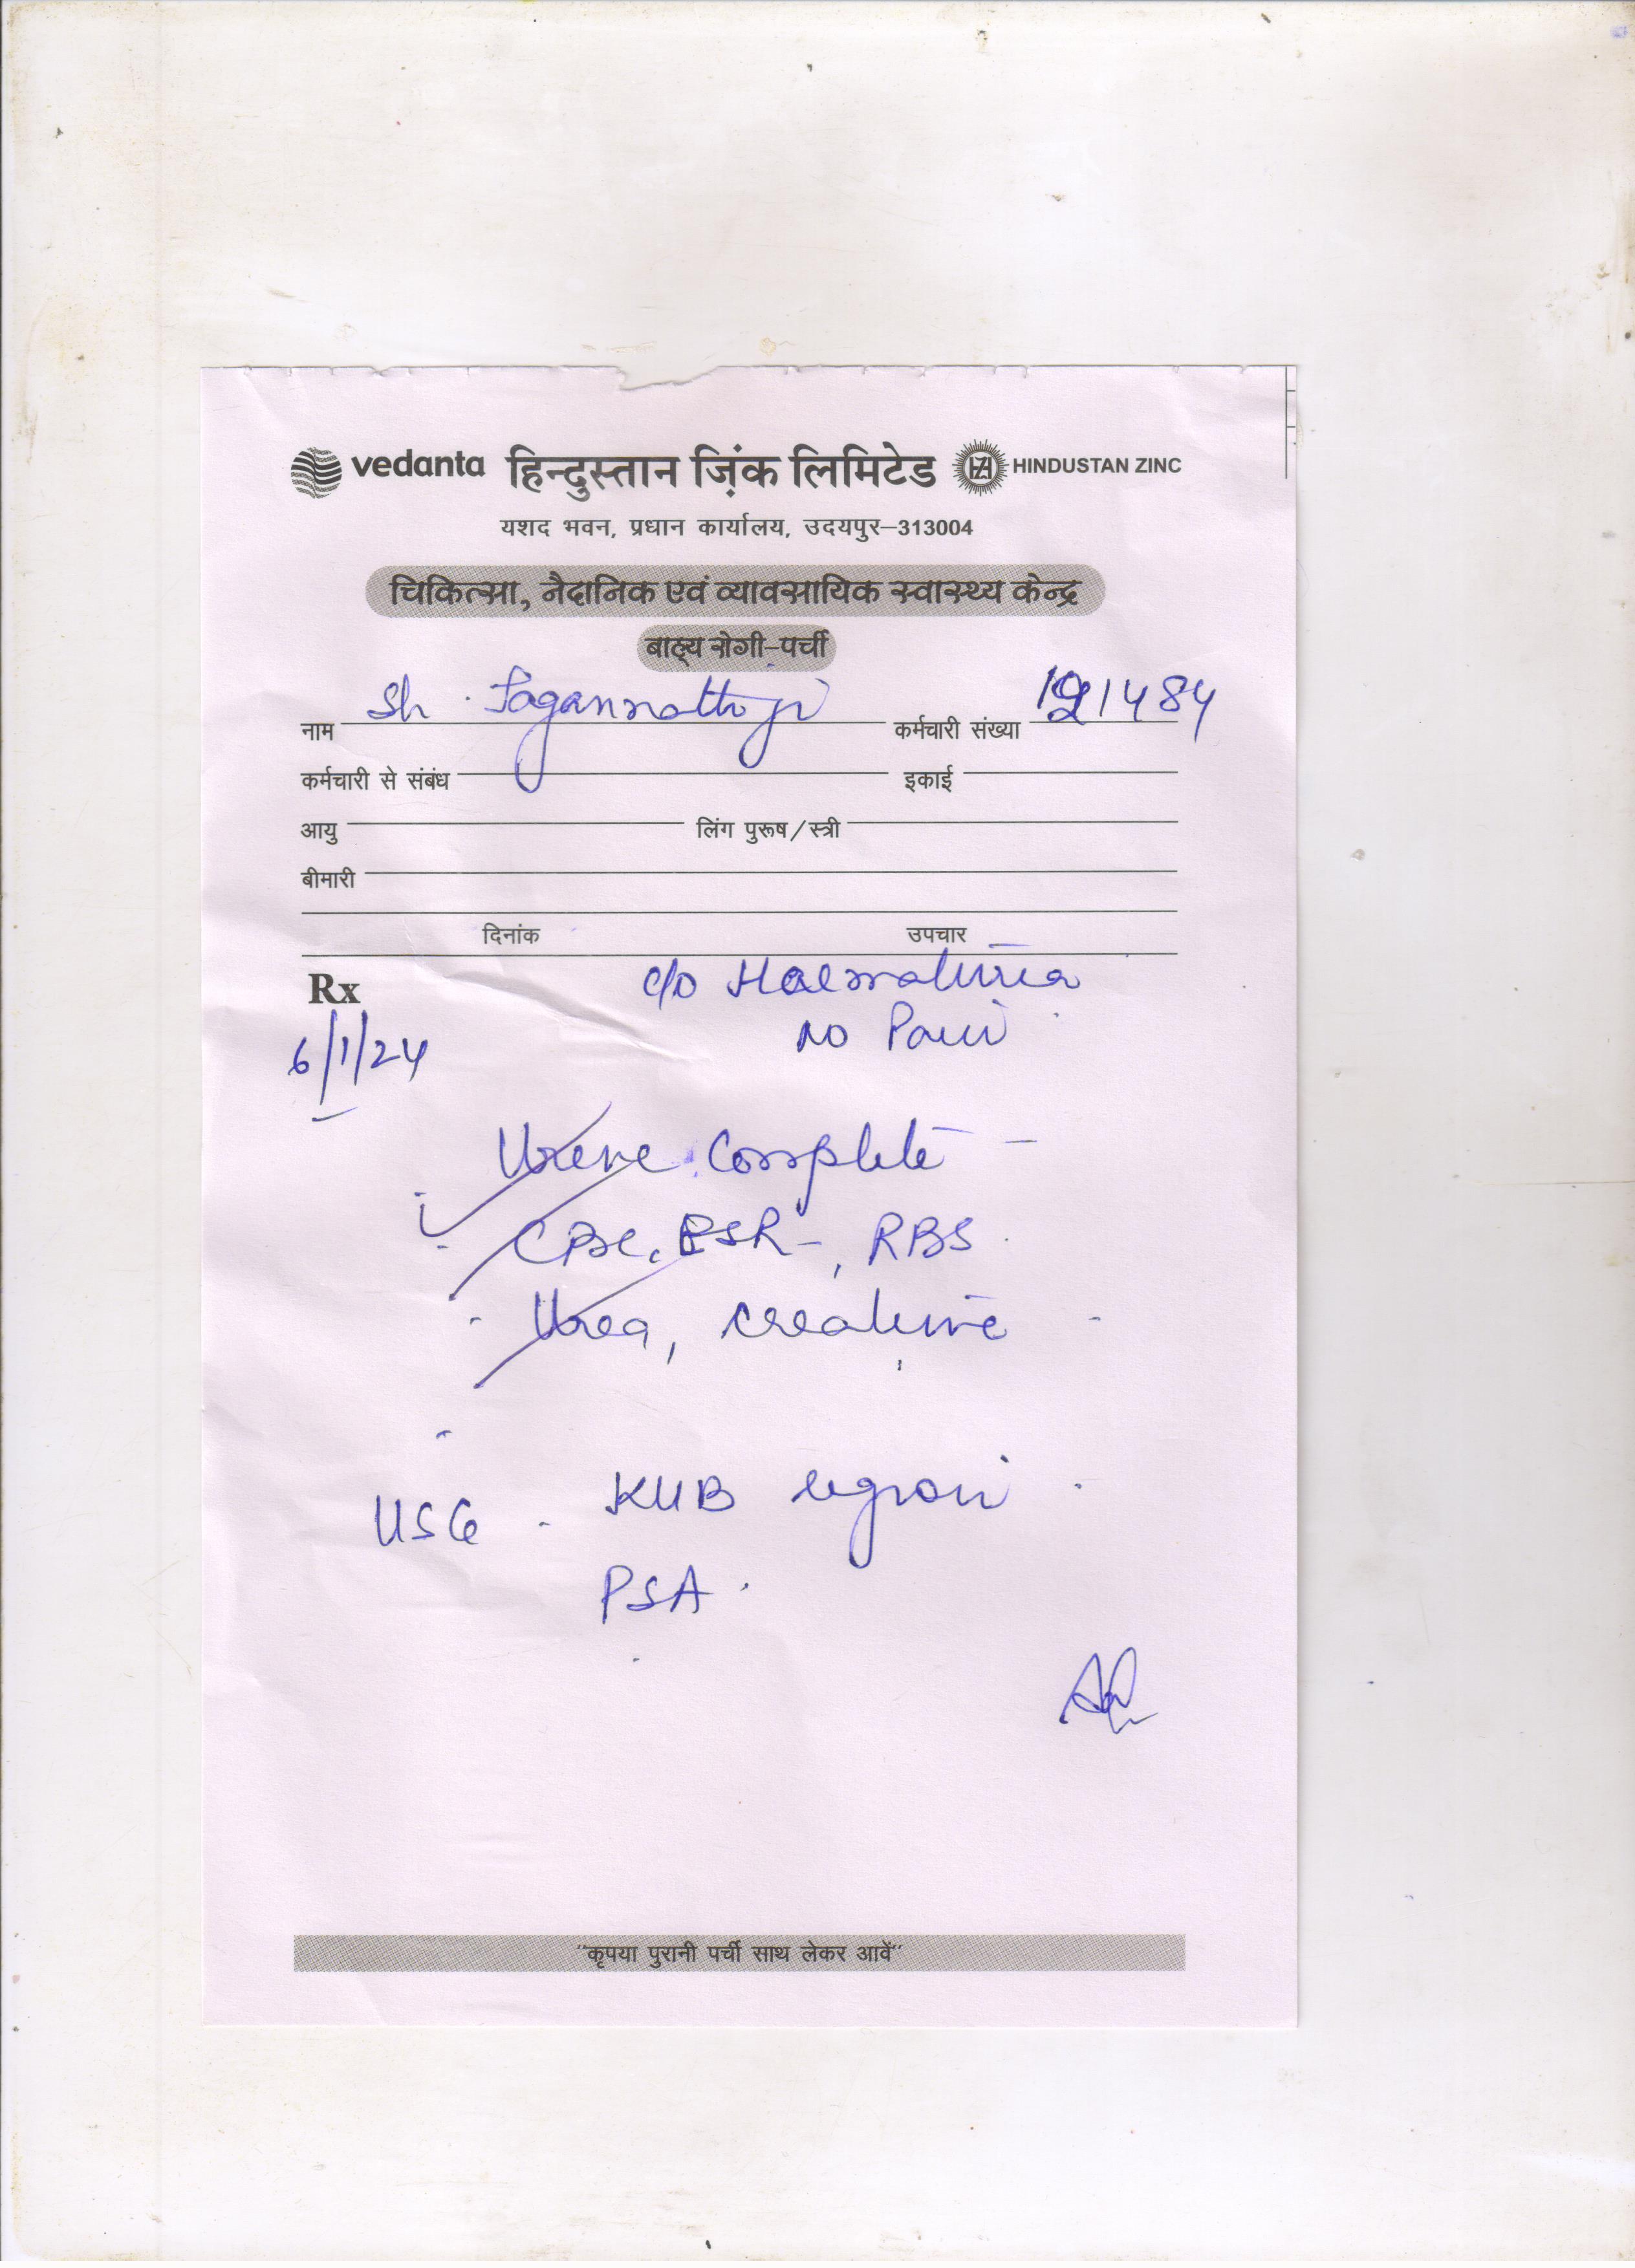 vedanta हिन्दुस्तान ज़िंक लिमिटेड HINDUSTAN ZINC
यशद भवन, प्रधान कार्यालय, उदयपुर–313004
चिकित्सा, नैदानिक एवं व्यावसायिक स्वास्थ्य केन्द्र
बाह्य रोगी-पर्ची
नाम Sh. Jagannath ji कर्मचारी संख्या
कर्मचारी से संबंध इकाई
आयु लिंग पुरूष/स्त्री
बीमारी
दिनांक उपचार
Rx c/o Haematuria
6/1/24 No Pain
Urine Complete
CBC, ESR, RBS
Urea, Creatinine
USG. KUB region
PSA
"कृपया पुरानी पर्ची साथ लेकर आवें"